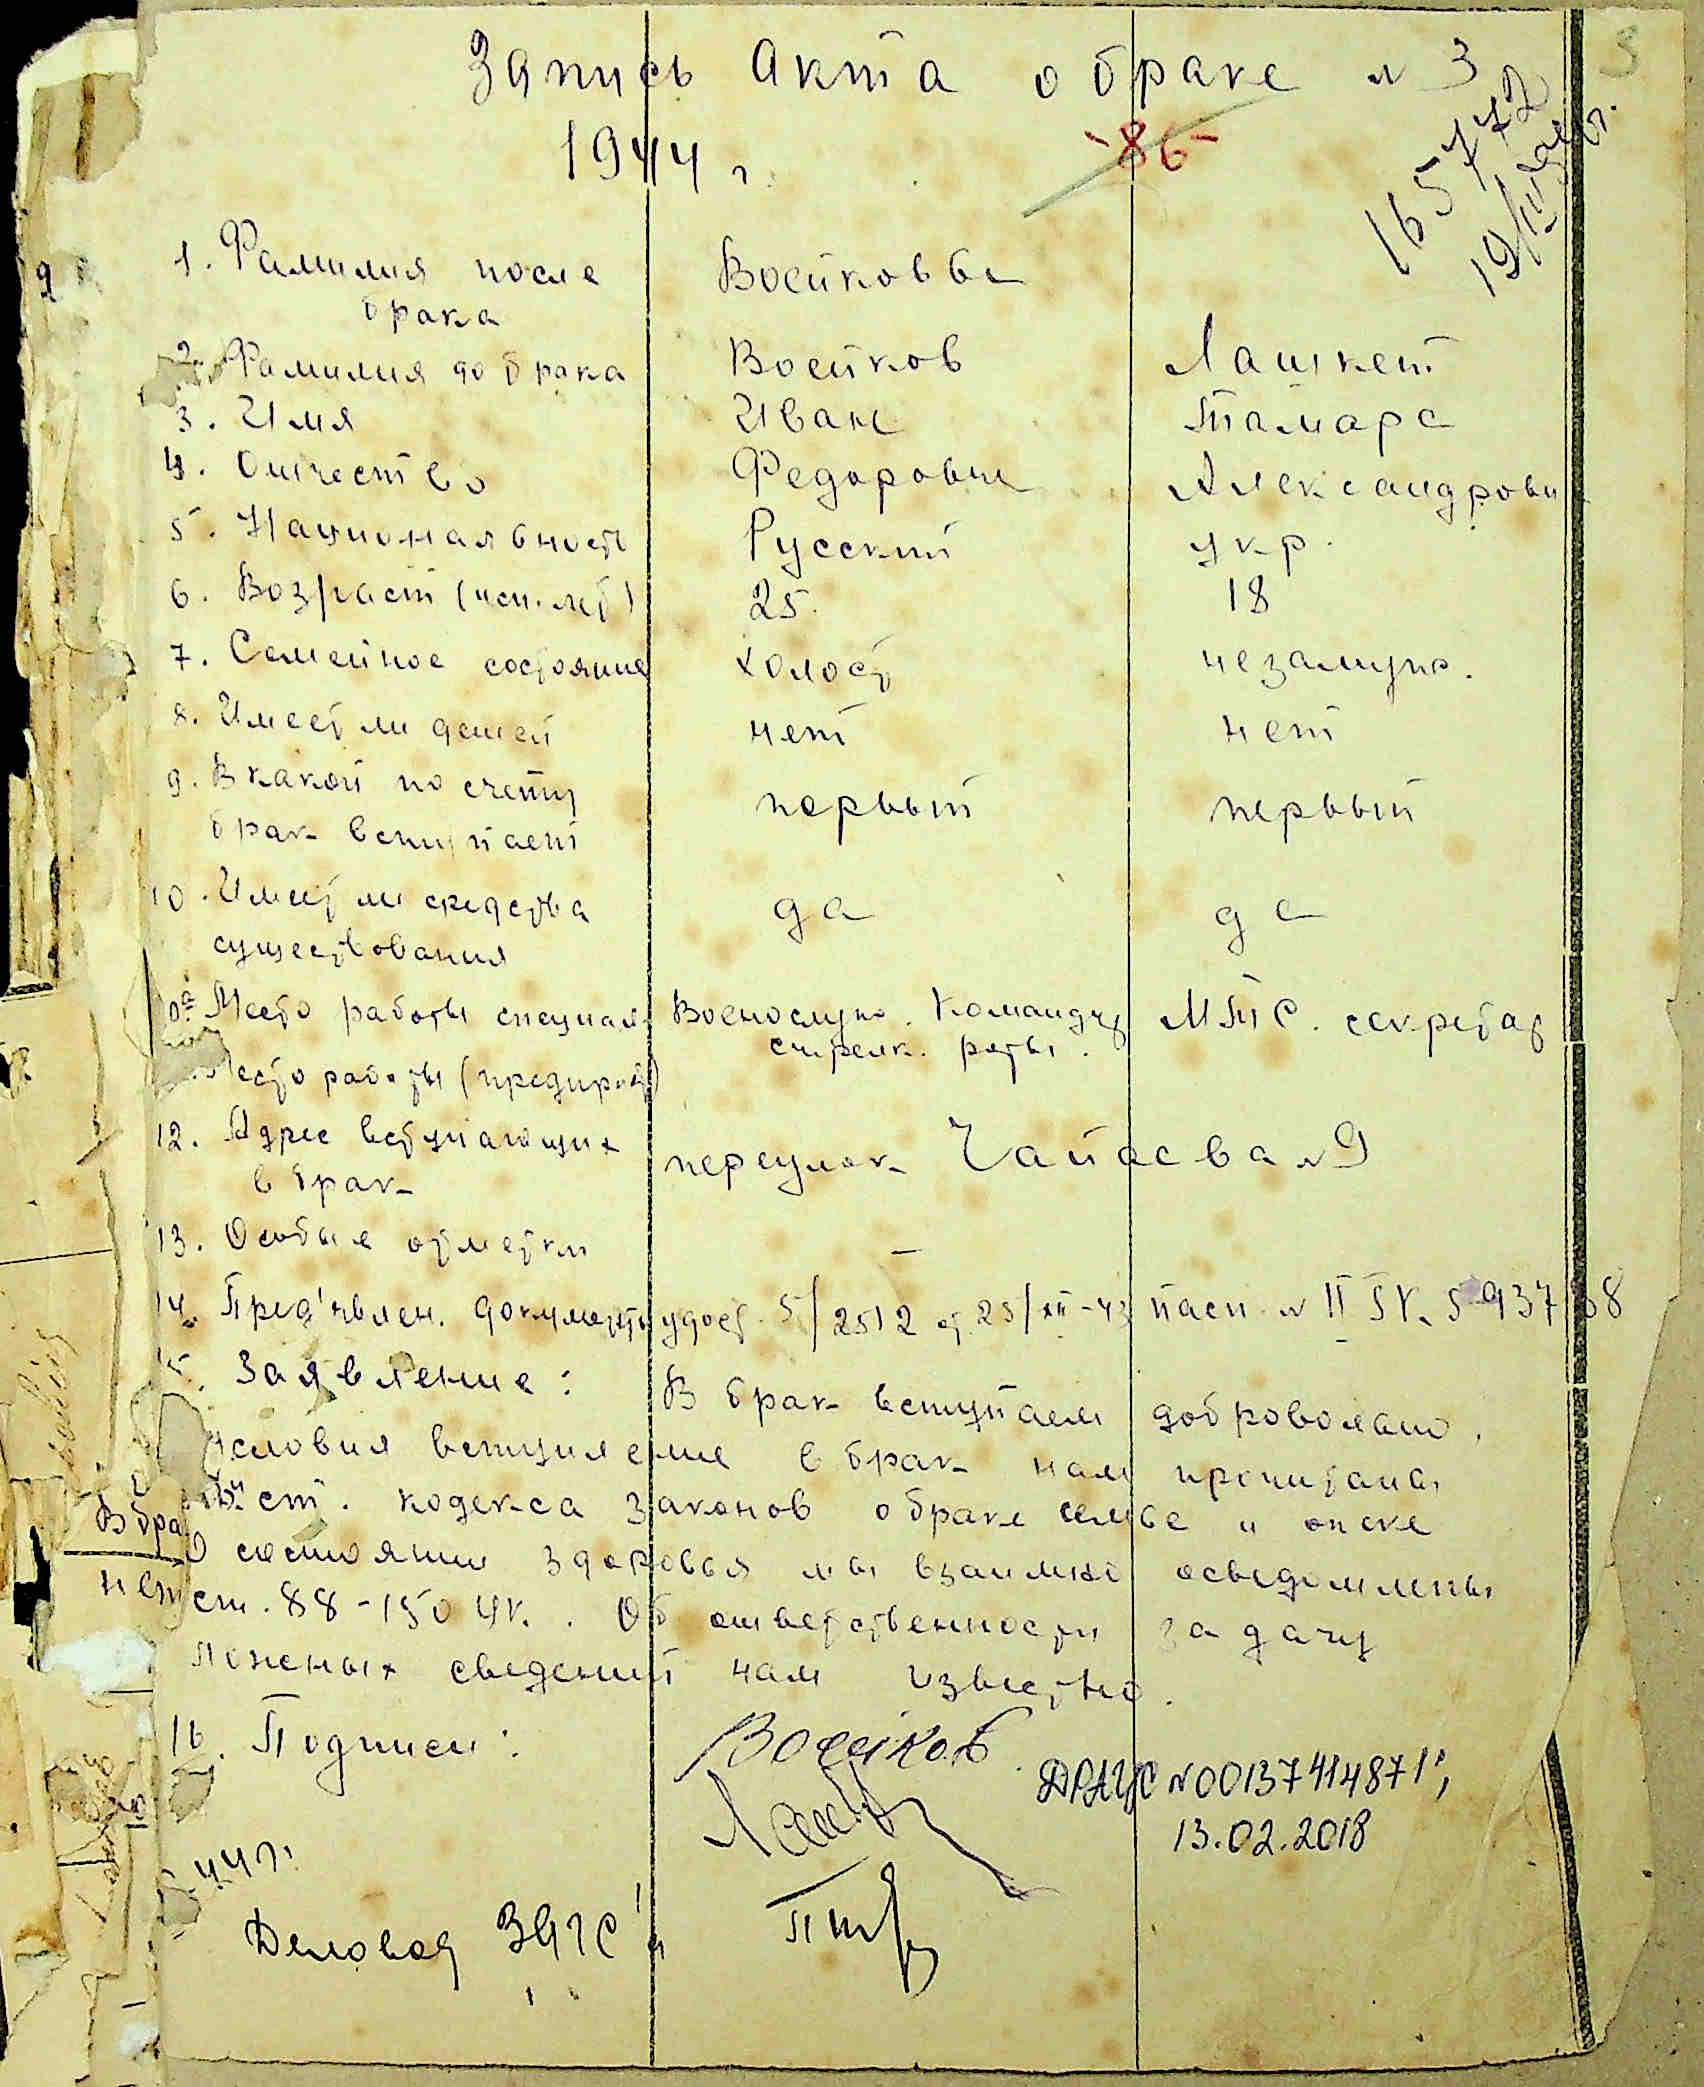 Запись Акта о браке N 3
1944 г.
-86-
165772
1. Фамилия после Воейковы
брака
2. Фамилия до брака Воейков Лашкет
3. Имя Иван Тамара
4. Отчество Федорович Александровн
5. Национальность Русский укр.
6. Возраст (исп. лет) 25 18
7. Семейное состояние холост незамуж.
8. Имеет ли детей нет нет
9. В какой по счету первый первый
брак вступает
10. Имеет ли средства да да
существования
10а Место работы специал. Военослуж. Командир МТС. секретар
стрелк. роты.
Место работы (предприят)
12. Адрес вступающих переулок Чапаева N 9
в брак
13. Особые отметки —
14. Пред'явлен. документы удост. 5/2512 от 23/XII-43 пасп. N II
15. Заявление: В брак вступаем добровольно.
условия вступление в брак нам прочитаны
ст. кодекса законов о браке семье и опеке
О состоянии здоровья мы взаимно осведомлены
ст. 88-150 УК. Об ответственности за дачу
ложных сведений нам известно.
В бра
нет
16. Подписи: Воейков
ДРАЦС N 00137414871,
13.02.2018
44 г.
Деловод ЗАГС'а